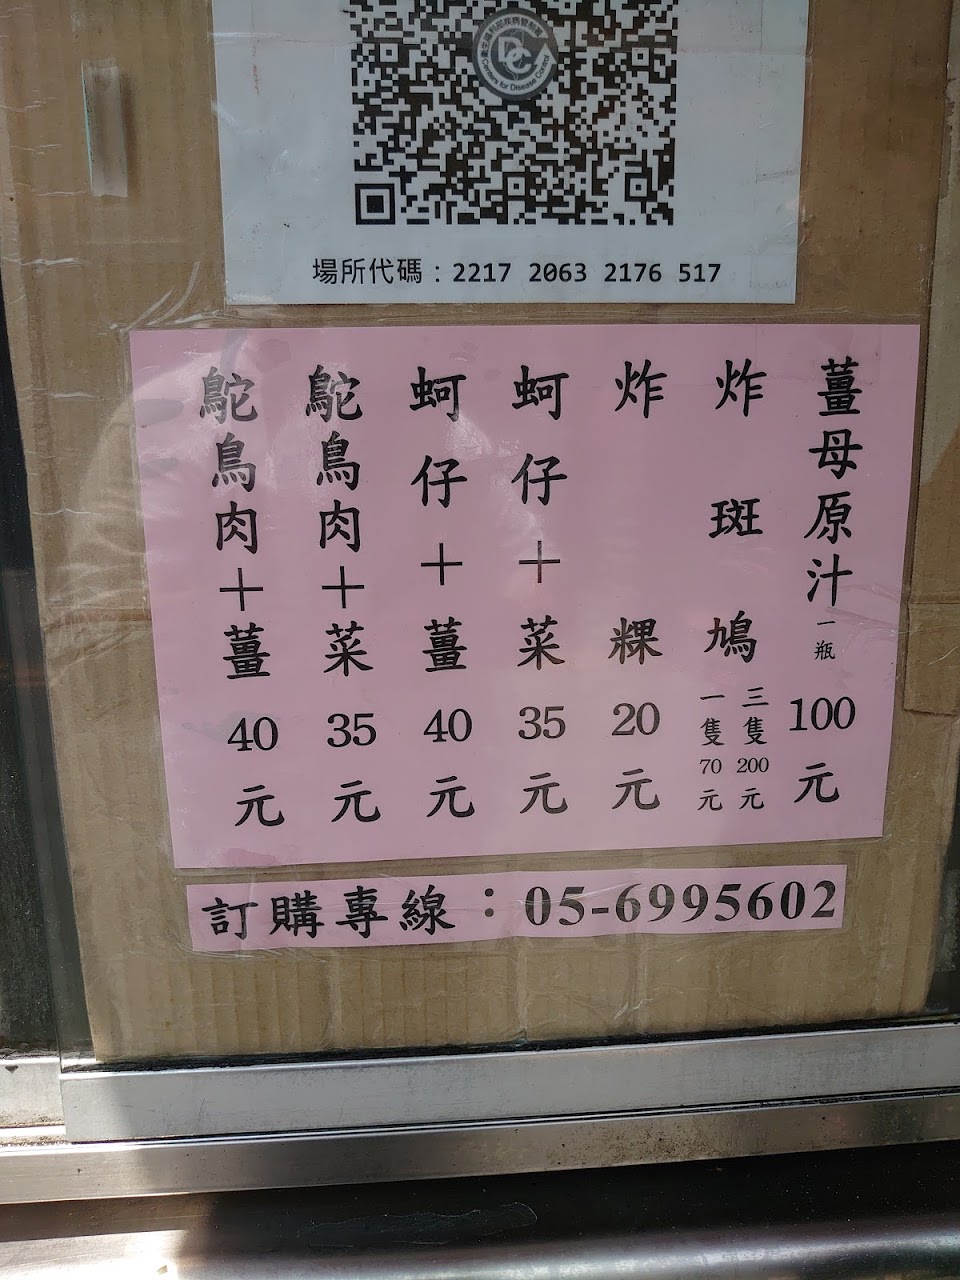 場所代碼：2217 2063 2176 517
薑母原汁一瓶100元
炸斑鳩
三隻200元
一隻70元
炸粿20元
蚵仔＋菜35元
蚵仔＋薑40元
鴕鳥肉＋菜35元
鴕鳥肉＋薑40元
訂購專線：05-6995602